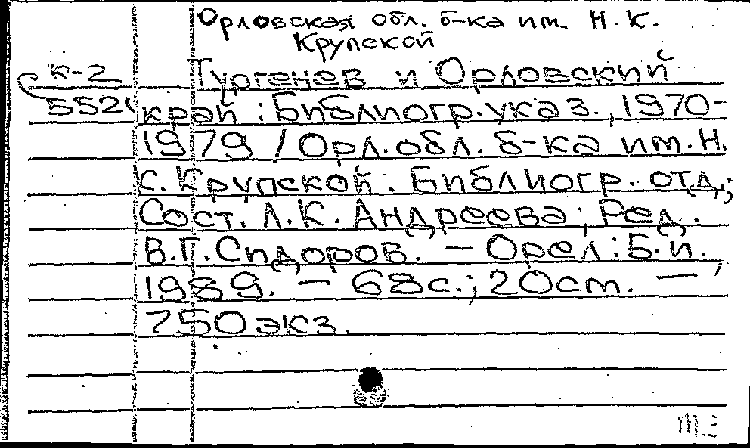 Орловская обл. б-ка им. Н.К.
Крупской
К-2
5524
Тургенев и Орловский
край : Библиогр. указ., 1970-
1979 / Орл. обл. б-ка им. Н.
К. Крупской. Библиогр. отд.;
Сост. Л.К. Андреева; Ред.
В.Г. Сидоров. — Орел : Б.и.,
1989. — 68с.; 20см. —
750экз.